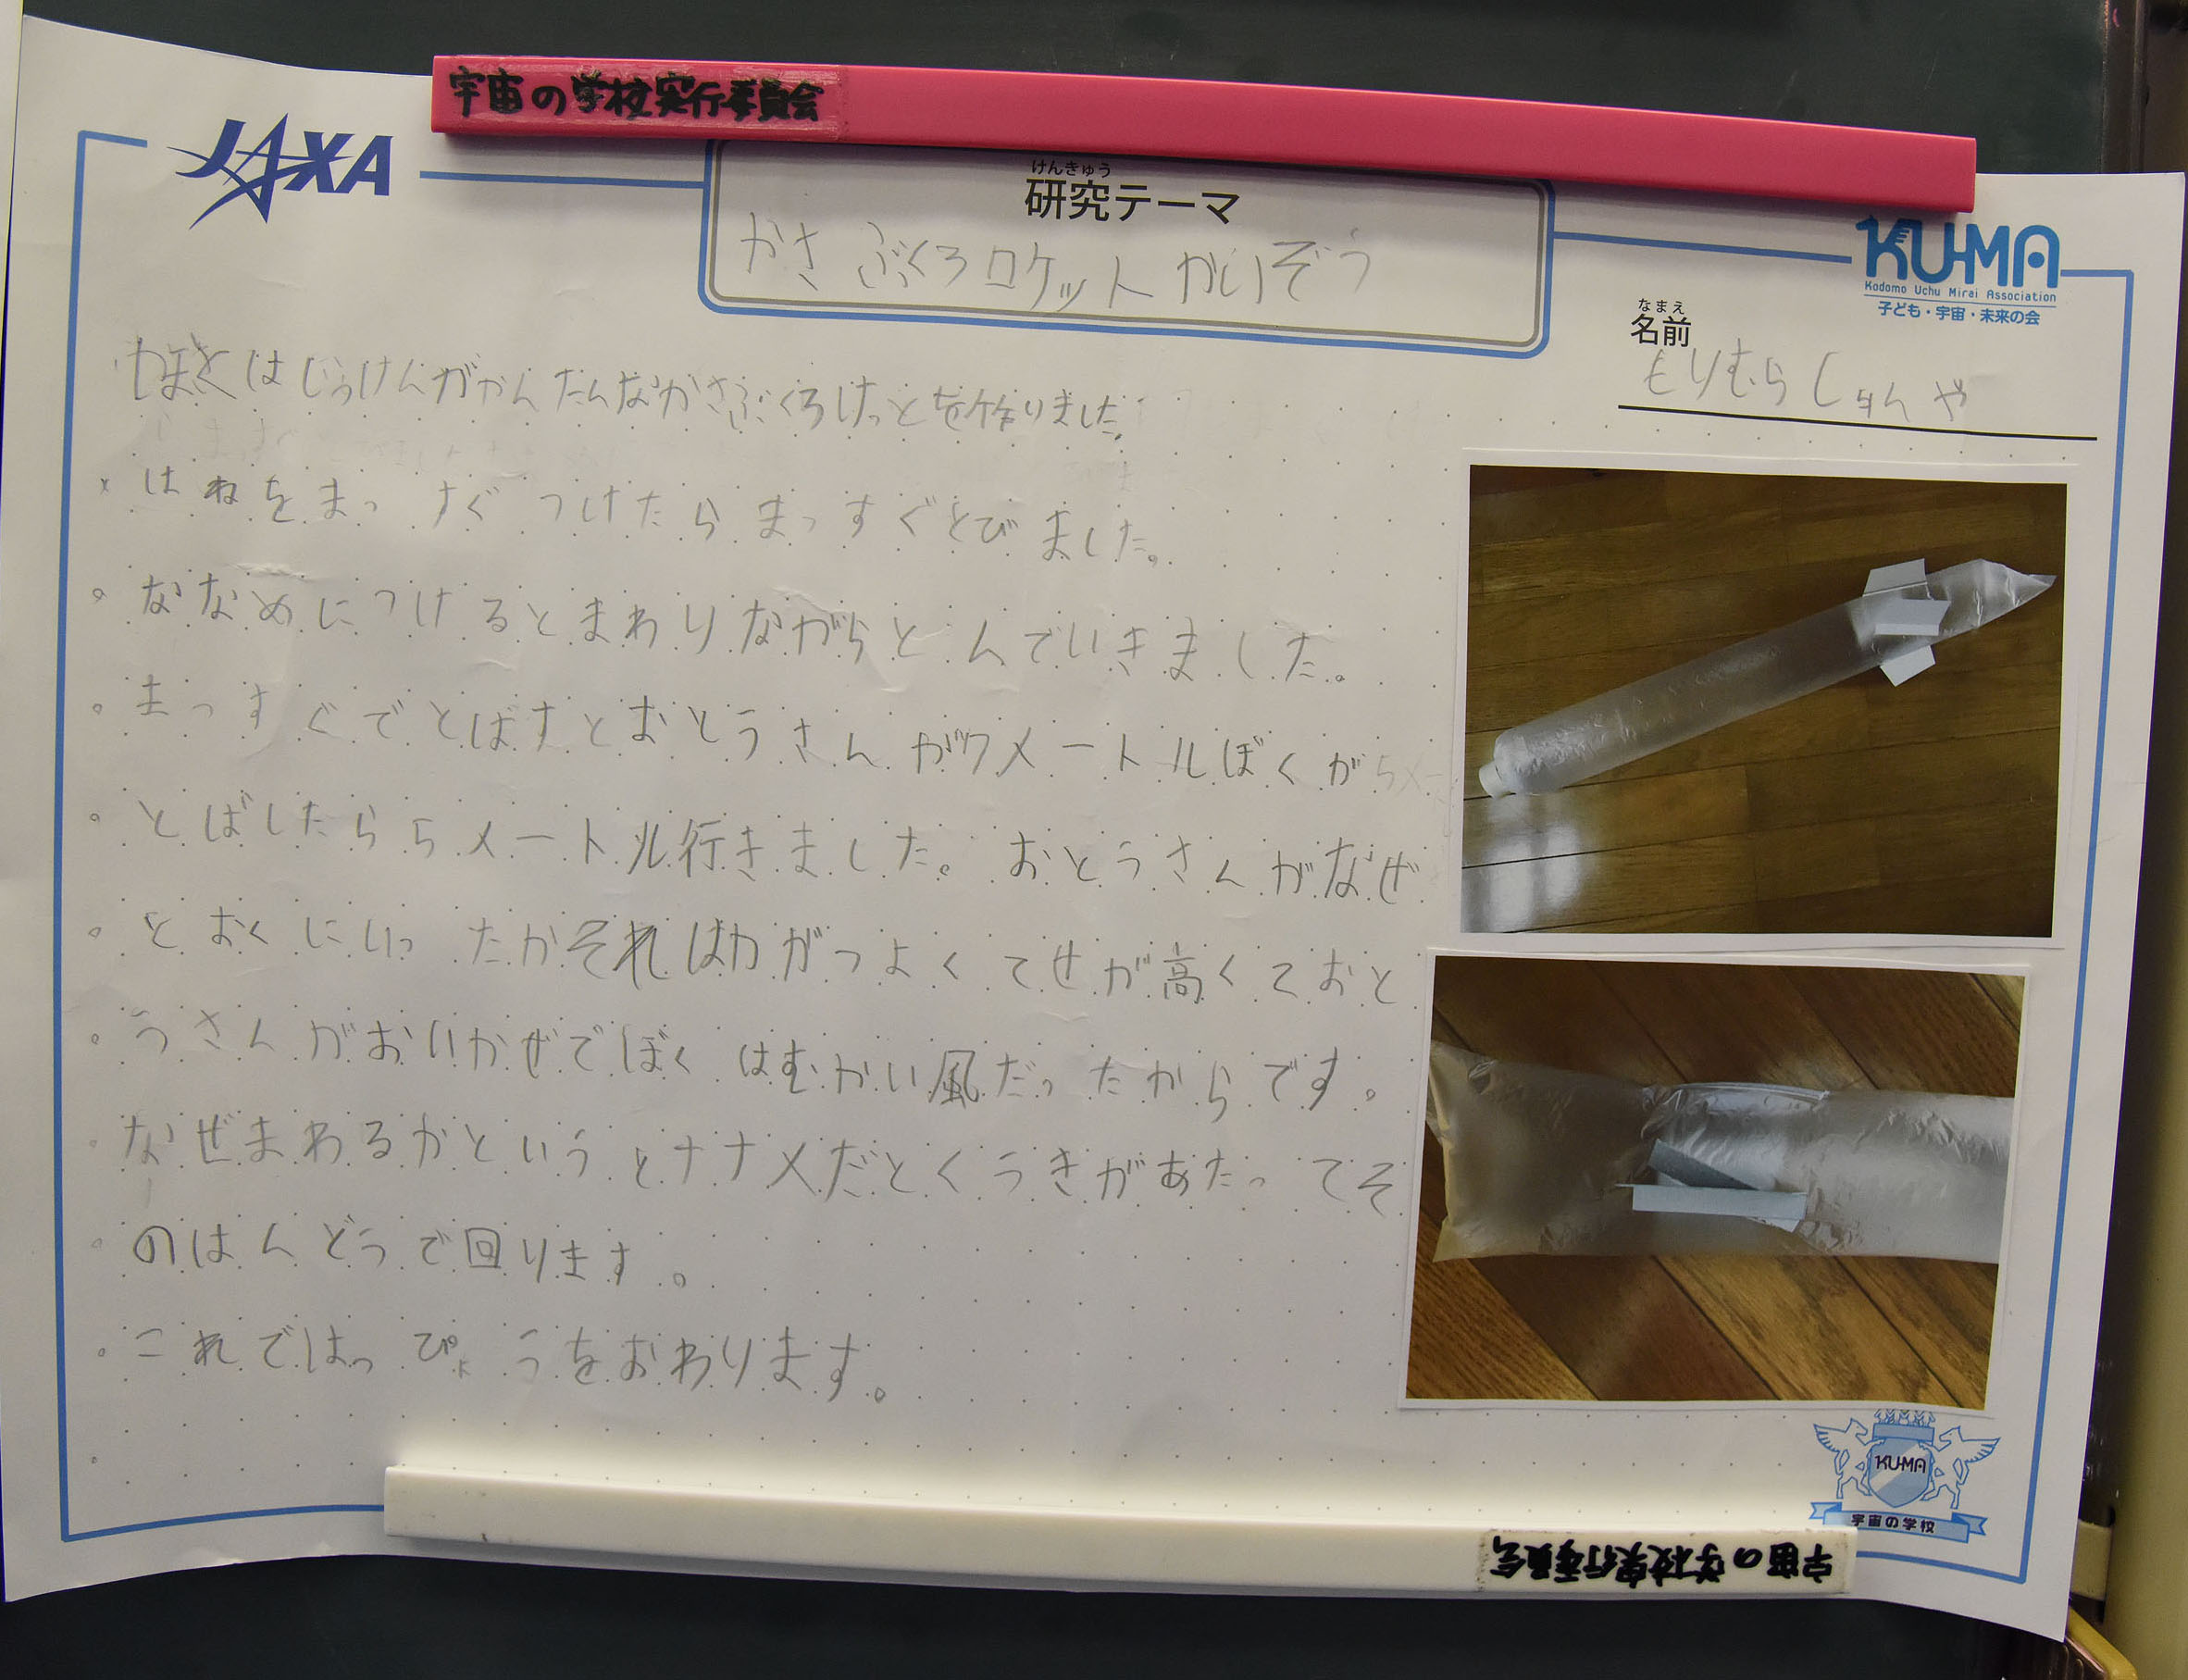 宇宙の学校実行委員会
JAXA
けんきゅう
研究テーマ
かさぶくろロケットかいぞう
KU-MA
Kodomo Uchu Mirai Association
子ども・宇宙・未来の会
なまえ
名前
もりむらしゅんや
ぼくはじっけんがかんたんなかさぶくろけっとを作りました。
はねをまっすぐつけたらまっすぐとびました。
ななめにつけるとまわりながらとんでいきました。
まっすぐでとばすとおとうさんが7メートルぼくが
とばしたら5メートル行きました。おとうさんがなぜ
とおくにいったかそれは力がつよくてせが高くておと
うさんがおいかぜでぼくはむかい風だったからです。
なぜまわるかというとナナメだとくうきがあたってそ
のはんどうで回ります。
これではっぴょうをおわります。
KU-MA
宇宙の学校
宇宙の学校実行委員会